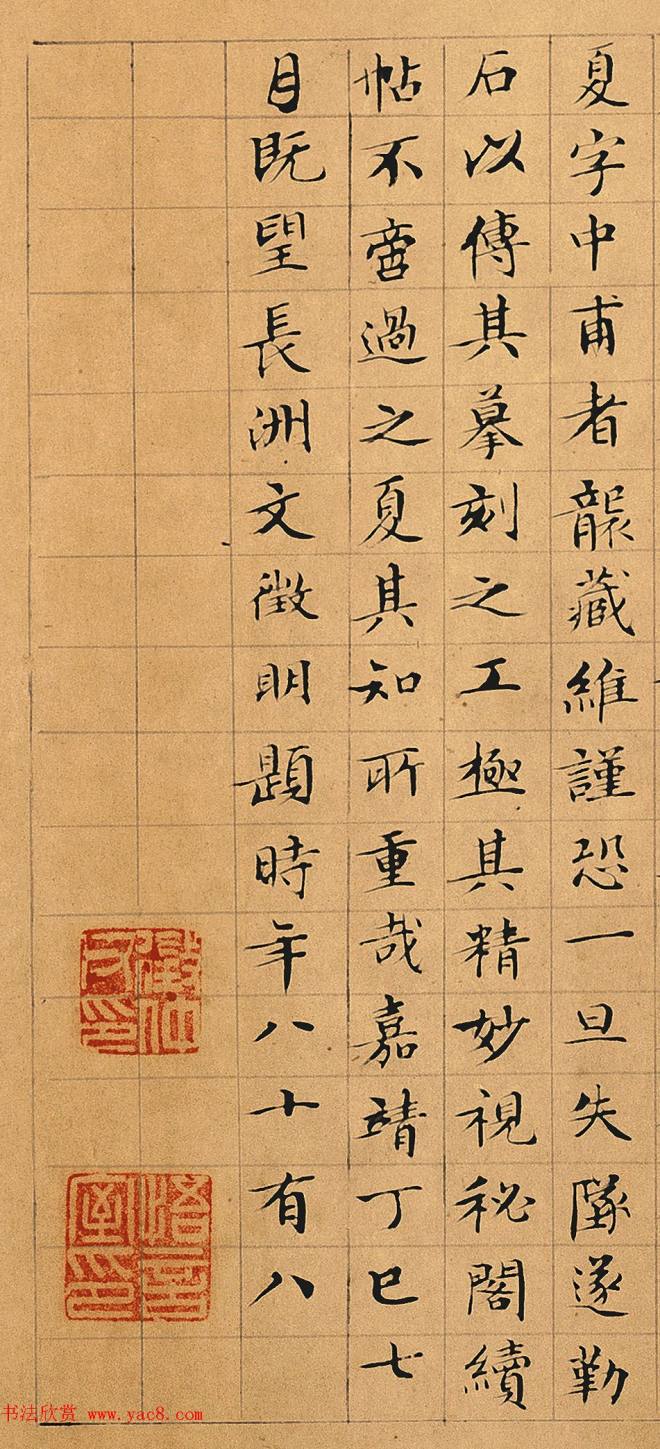 夏字中甫者襲藏維謹恐一旦失墜遂勒
石以傳其摹刻之工極其精妙視秘閣續
帖不啻過之夏其知所重哉嘉靖丁巳七
月既望長洲文徵明題時年八十有八
徵明父印
悟言室印
书法欣赏 www.yac8.com